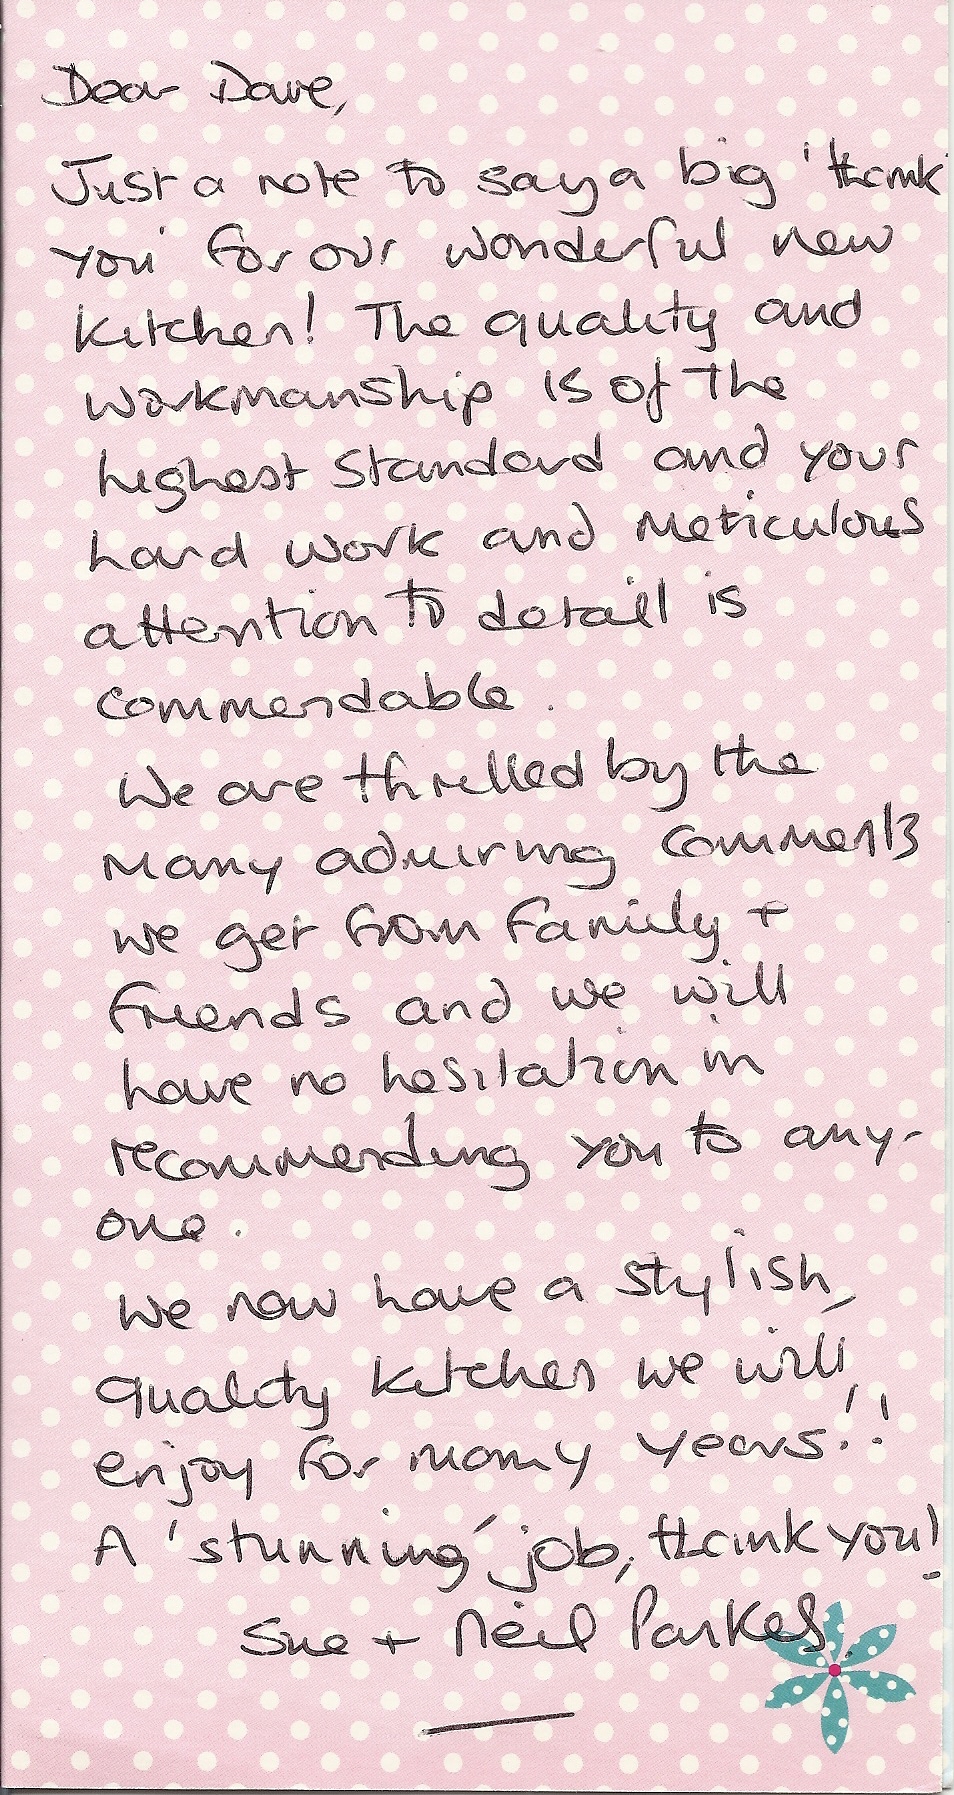 Dear Dave,
Just a note to say a big 'thank
you' for our wonderful new
kitchen! The quality and
workmanship is of the
highest standard and your
hard work and meticulous
attention to detail is
commendable.
We are thrilled by the
many admiring comments
we get from family +
friends and we will
have no hesitation in
recommending you to any-
one.
We now have a stylish,
quality kitchen we will
enjoy for many years!!
A 'stunning' job, thank you!
Sue + Neil Parkes.